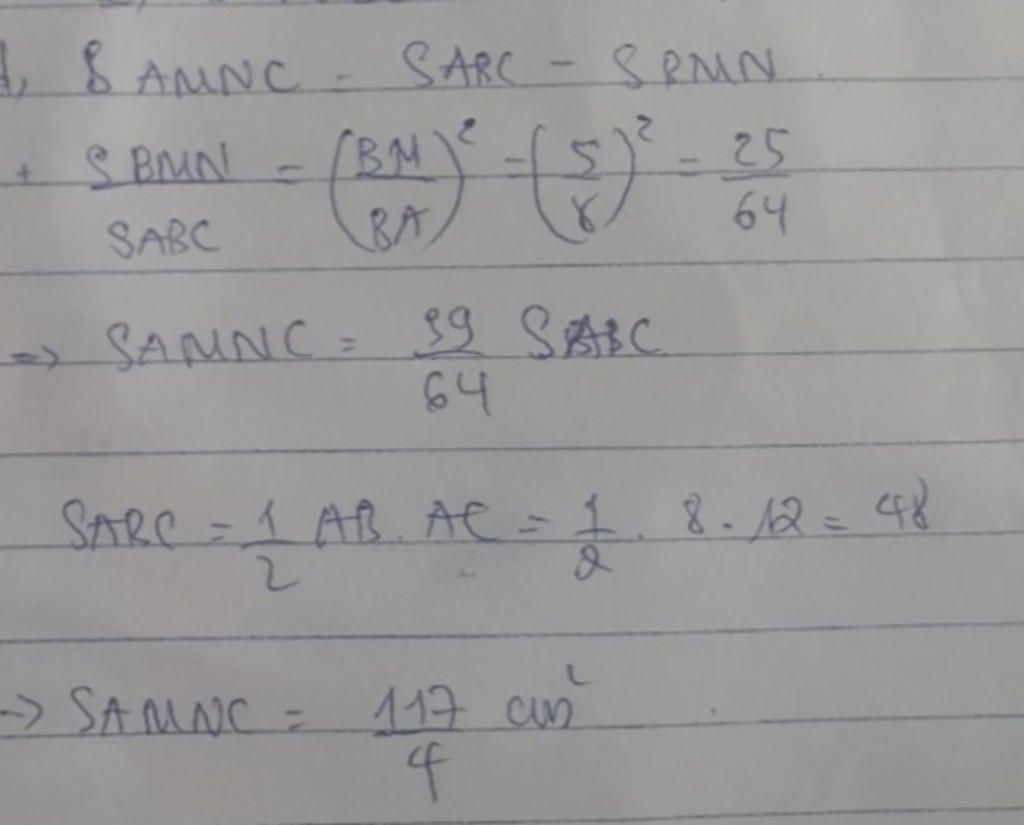 d, SAMNC = SABC - SBMN.
+ SBMN / SABC = (BM / BA)² = (5 / 8)² = 25 / 64
=> SAMNC = 39 / 64 SABC
SABC = 1 / 2 AB. AC = 1 / 2 . 8. 12 = 48
-> SAMNC = 117 / 4 cm²